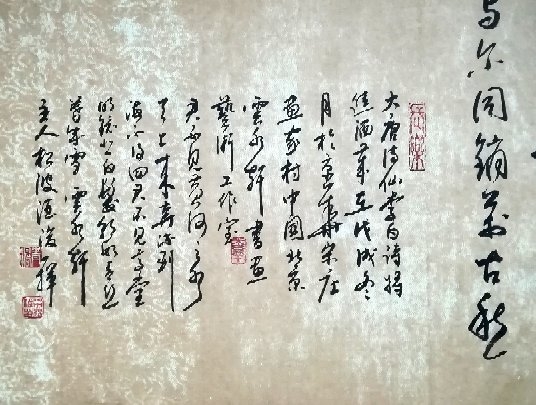 与尔同销万古愁
大唐诗仙李白诗将
进酒岁在戊戌冬
月于京华宋庄
画家村中国北京
云水轩书画
艺术工作室
君不见黄河之水
天上来奔流到
海不复回君不见高堂
明镜悲白发朝如青丝
暮成雪云水轩
主人松波酒后挥